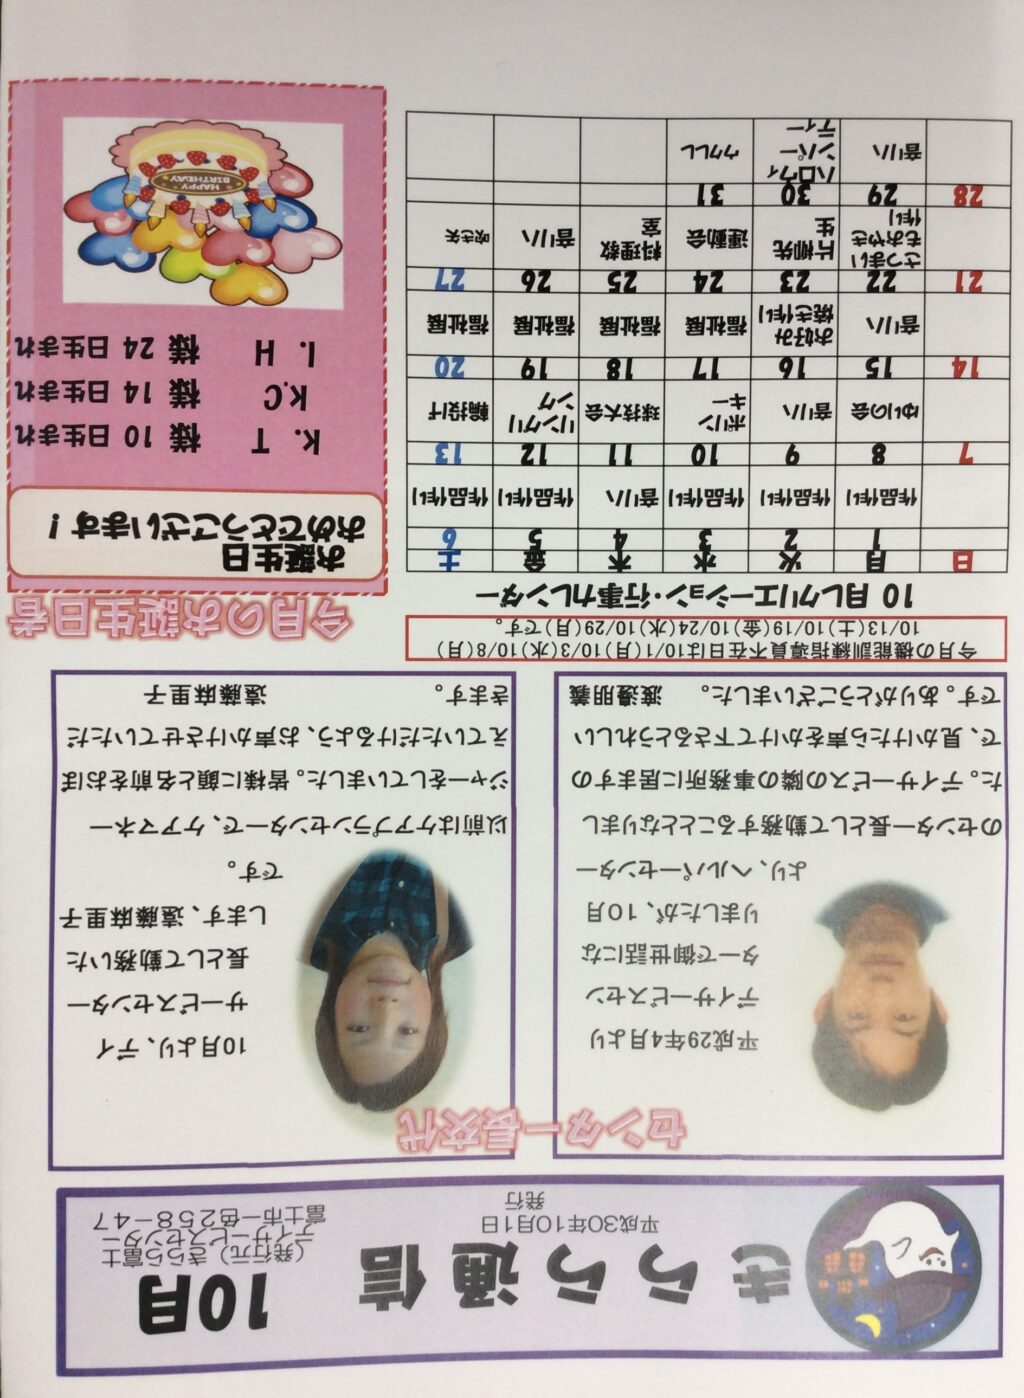 きらら通信
平成30年10月1日
発行
10月
(発行元)きらら富士
デイサービスセンター
富士市一色258-47
センター長交代
平成29年4月より
デイサービスセン
ターで御世話にな
りましたが、10月
より、ヘルパーセンター
のセンター長として勤務することとなりまし
た。デイサービスの隣の事務所に居ますの
で、見かけたら声をかけて下さるとうれしい
です。ありがとうございました。 渡邊朋義
10月より、デイ
サービスセンター
長として勤務いた
します、遠藤麻里子
です。
以前はケアプランセンターで、ケアマネー
ジャーをしていました。皆様に顔と名前をおぼ
えていただけるよう、お声かけさせていただ
きます。 遠藤麻里子
今月の機能訓練指導員不在日は10/1(月)10/3(水)10/8(月)
10/13(土)10/19(金)10/24(水)10/29(月)です。
10月レクリエーション・行事カレンダー
日 月 火 水 木 金 土
1 2 3 4 5 6
作品作り 作品作り 作品作り 音リハ 作品作り 作品作り
7 8 9 10 11 12 13
ゆいの会 音リハ ボリンキー 球技大会 リングリング 輪投げ
14 15 16 17 18 19 20
音リハ お好み焼き作り 福祉展 福祉展 福祉展 福祉展
21 22 23 24 25 26 27
さつまいもおやき作り 片柳先生 運動会 料理教室 音リハ 吹き矢
28 29 30 31
音リハ ハロウィンパーティー ウクレレ
今月のお誕生日者
お誕生日
おめでとうございます!
K. T 様 10日生まれ
K.C 様 14日生まれ
I. H 様 24日生まれ
HAPPY
BIRTHDAY